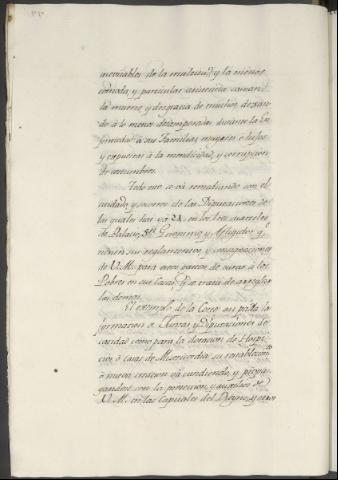 inevitables de la multitud y la menos
cómoda, y particular asistencia causan
la muerte, y desgracia de muchos, dexan-
do à lo menos desamparadas durante la en-
fermedad à sus Familias, mugeres è hijos
y expuestas à la mendicidad, y corrupcion
de costumbres.
Todo esto se vá remediando con el
cuidado, y socorro de las Diputaciones de
las quales hai ya 24 en los tres quarteles
de Palacio, Sn Geronimo, y Afligidos q.e
tienen sus reglamentos y consignaciones
de V.M. para estos gastos de curar à los
Pobres en sus Casas, y se trata de arreglar
las demas.
El exemplo de la Corte asi para la
formacion de Juntas, y Diputaciones de
caridad como para la dotacion de Hospi-
cios ò casas de Misericordia su restablecim.to
ò nueva creacion vá cundiendo, y propa-
gandose con la proteccion, y auxilios de
V.M. en las Capitales del Reyno, y otros